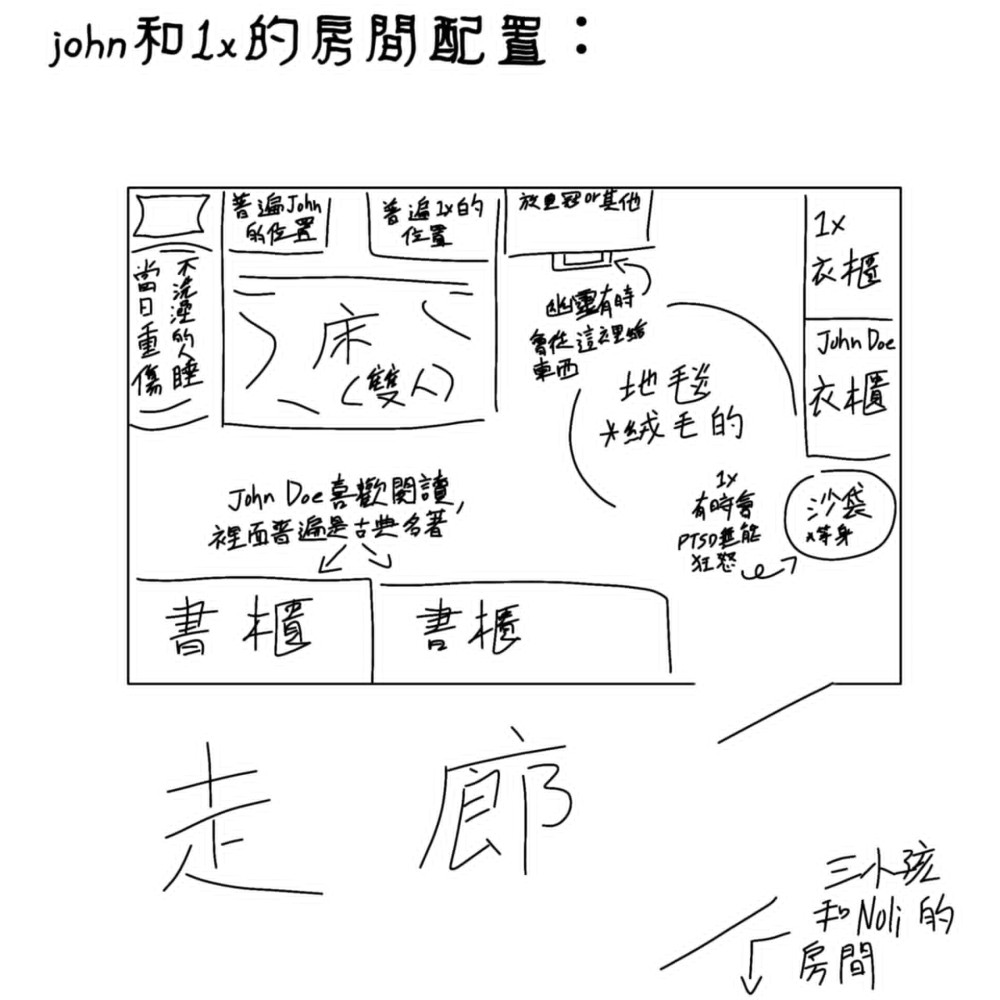 john和1x的房間配置：
普遍John
的位置
普遍1x的
位置
放皇冠or其他
1x
衣櫃
不洗澡的人睡
當日重傷
床
(雙人)
幽靈有時
會從這裡給
東西
John Doe
衣櫃
地毯
*絨毛的
John Doe喜歡閱讀,
裡面普遍是古典名著
1x
有時會
PTSD無能
狂怒
沙袋
*等身
書櫃
書櫃
走廊
三小孩
和Noli的
房間